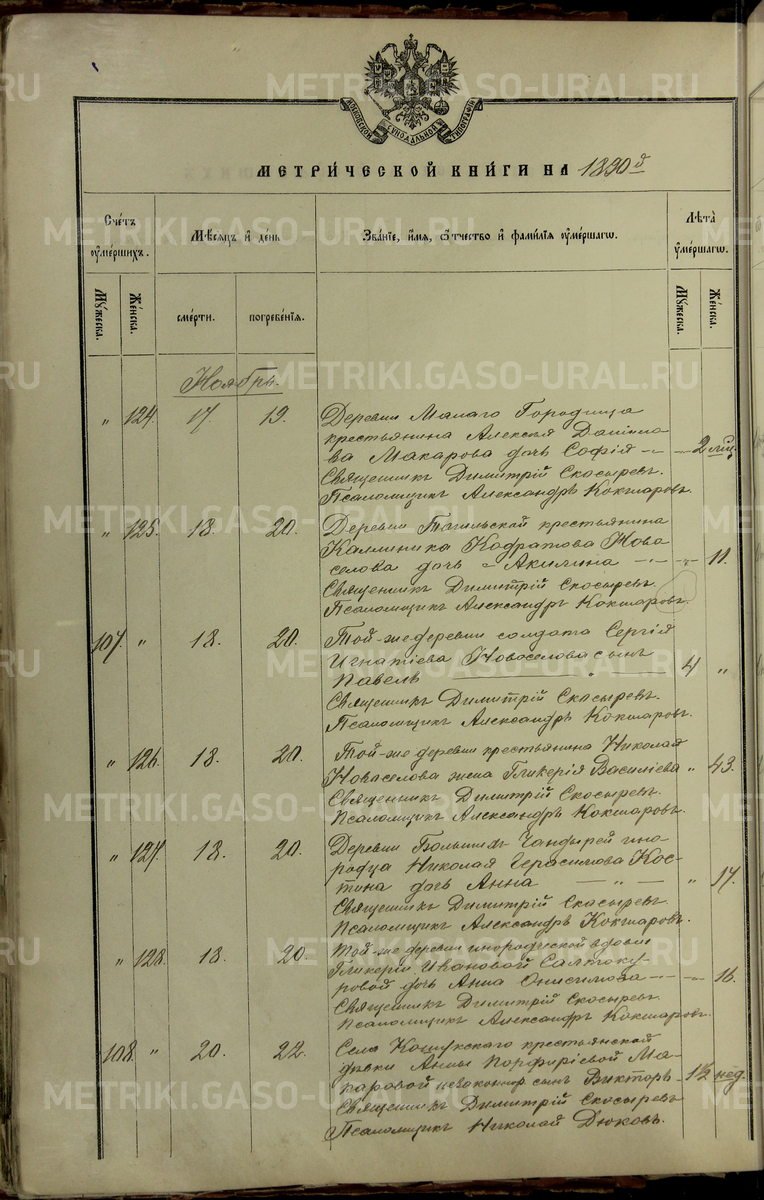 МОСКОВСКОЙ СѴНОДАЛЬНОЙ ТИПОГРАФІИ
МЕТРИ́ЧЕСКОЙ КНИ́ГИ НА 1890 д
Сче́тъ ᲂуме́ршихъ.
Мꙋ́жеска.
Же́нска.
Мѣ́сѧцъ и҆ де́нь
сме́рти.
погребе́нїѧ.
Зва́нїе, и҆́мѧ, ѻ҆́тчество и҆ фами́лїѧ ᲂу҆ме́ршагѡ.
Лѣ́та ᲂу҆ме́ршагѡ.
Мꙋ́жеска.
Же́нска.
Ноябрь.
" 124. 17. 19. Деревни Малаго Городища
крестьянина Алексія Даніило-
ва Макарова дочь Софія 2 мѣц.
Священникъ Димитрій Скосыревъ.
Псаломщикъ Александръ Кокшаровъ.
" 125. 18. 20. Деревни Тагильской крестьянина
Каллиника Кодратова Ново
селова дочь Акилина 11.
Священникъ Димитрій Скосыревъ.
Псаломщикъ Александръ Кокшаровъ.
107. " 18. 20. Той-же деревни солдата Сергія
Игнатіева Новоселова сынъ
Павелъ " 4 "
Священникъ Димитрій Скосыревъ.
Псаломщикъ Александръ Кокшаровъ.
" 126. 18. 20. Той-же деревни крестьянина Николая
Новоселова жена Гликерія Василіева " 43.
Священникъ Димитрій Скосыревъ.
Псаломщикъ Александръ Кокшаровъ.
" 127. 18. 20. Деревни Большихъ Чандырей ино-
родца Николая Герасимова Кос-
тина дочь Анна " " 17.
Священникъ Димитрій Скосыревъ.
Псаломщикъ Александръ Кокшаровъ.
" 128. 18. 20. Той-же деревни инородческой вдовы
Гликеріи Ивановой Салтоку-
ровой дочь Анна Онисимова 16.
Священникъ Димитрій Скосыревъ.
Псаломщикъ Александръ Кокшаровъ.
108. " 20. 22. Села Кошукскаго крестьянской
дѣвки Анны Порфиріевой Ма-
каровой незаконнор. сынъ Викторъ 1½ нед.
Священникъ Димитрій Скосыревъ
Псаломщикъ Николай Дюковъ.
METRIKI.GASO-URAL.RU